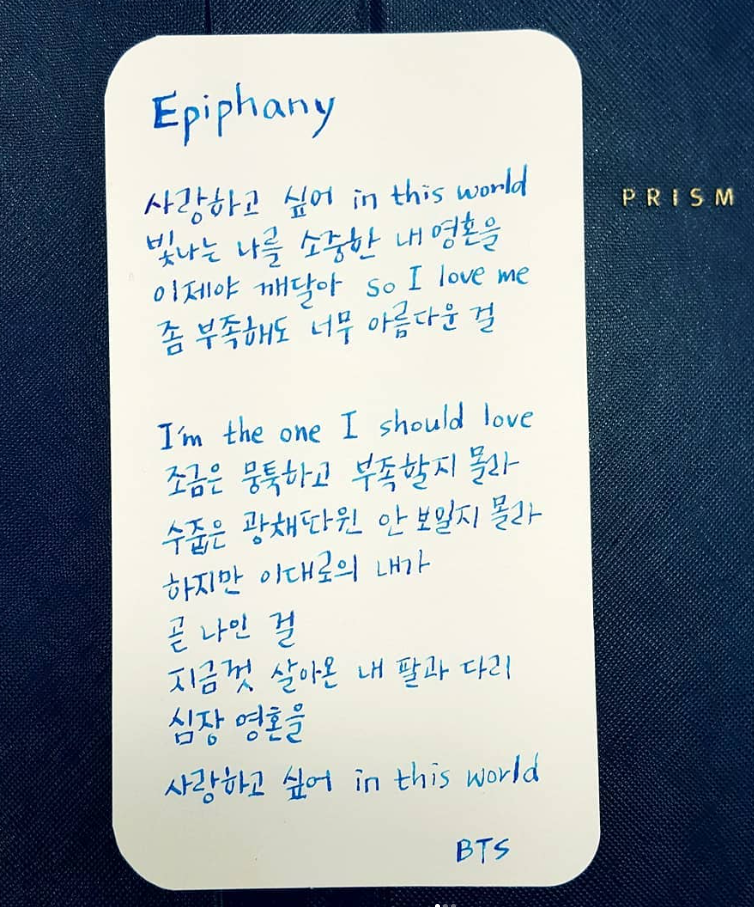 Epiphany
사랑하고 싶어 in this world
PRISM
빛나는 나를 소중한 내 영혼을
이제야 깨달아 so I love me
좀 부족해도 너무 아름다운 걸
I'm the one I should love
조금은 뭉툭하고 부족할지 몰라
수줍은 광채따윈 안 보일지 몰라
하지만 이대로의 내가
곧 나인 걸
지금껏 살아온 내 팔과 다리
심장 영혼을
사랑하고 싶어 in this world
BTS